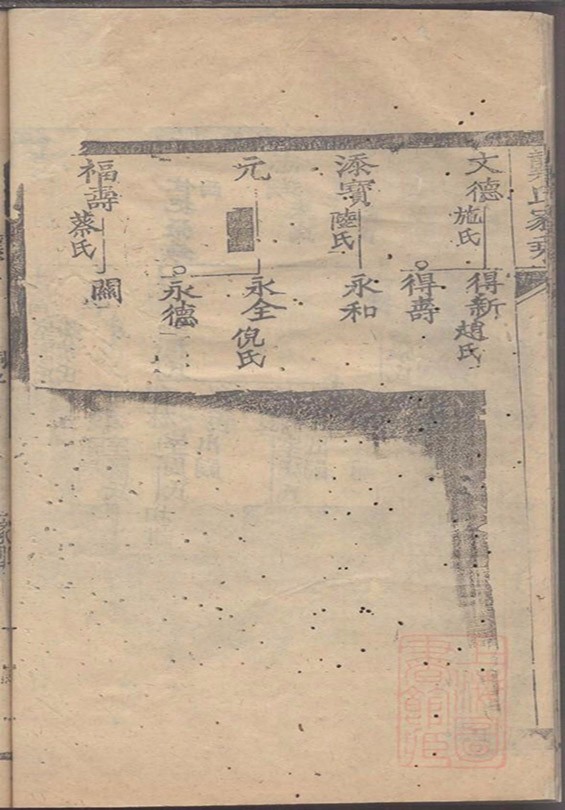 文德 施氏
得新 趙氏
得壽
添寶 陸氏
永和
元
永全 倪氏
永德
福壽 蔡氏
關